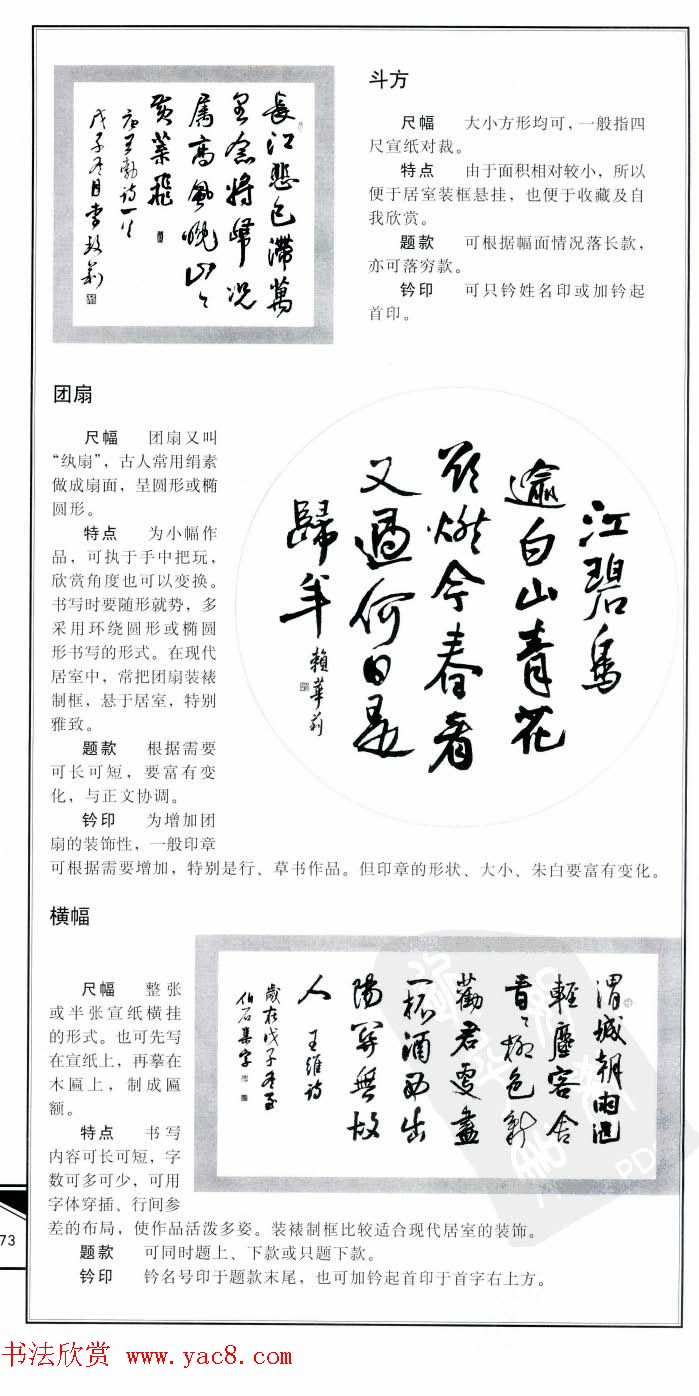 長江悲已滯萬
里念將歸況
屬高風晚山々
黃葉飛
唐王勃詩一首
戊子冬月李
斗方
尺幅 大小方形均可，一般指四
尺宣纸对裁。
特点 由于面积相对较小，所以
便于居室装框悬挂，也便于收藏及自
我欣赏。
题款 可根据幅面情况落长款，
亦可落穷款。
钤印 可只钤姓名印或加钤起
首印。
团扇
尺幅 团扇又叫
“纨扇”，古人常用绢素
做成扇面，呈圆形或椭
圆形。
特点 为小幅作
品，可执于手中把玩，
欣赏角度也可以变换。
书写时要随形就势，多
采用环绕圆形或椭圆
形书写的形式。在现代
居室中，常把团扇装裱
制框，悬于居室，特别
雅致。
题款 根据需要
可长可短，要富有变
化，与正文协调。
钤印 为增加团
扇的装饰性，一般印章
可根据需要增加，特别是行、草书作品。但印章的形状、大小、朱白要富有变化。
江碧鳥
逾白山青花
欲燃今春看
又過何日是
歸年
賴華莉
横幅
尺幅 整张
或半张宣纸横挂
的形式。也可先写
在宣纸上，再摹在
木匾上，制成匾
额。
特点 书写
内容可长可短，字
数可多可少，可用
字体穿插、行间参
差的布局，使作品活泼多姿。装裱制框比较适合现代居室的装饰。
题款 可同时题上、下款或只题下款。
钤印 钤名号印于题款末尾，也可加钤起首印于首字右上方。
渭城朝雨浥
輕塵客舍
青々柳色新
勸君更盡
一杯酒西出
陽關無故
人 王維詩
歲在戊子冬至
伯石集字
73
书法欣赏 www.yac8.com